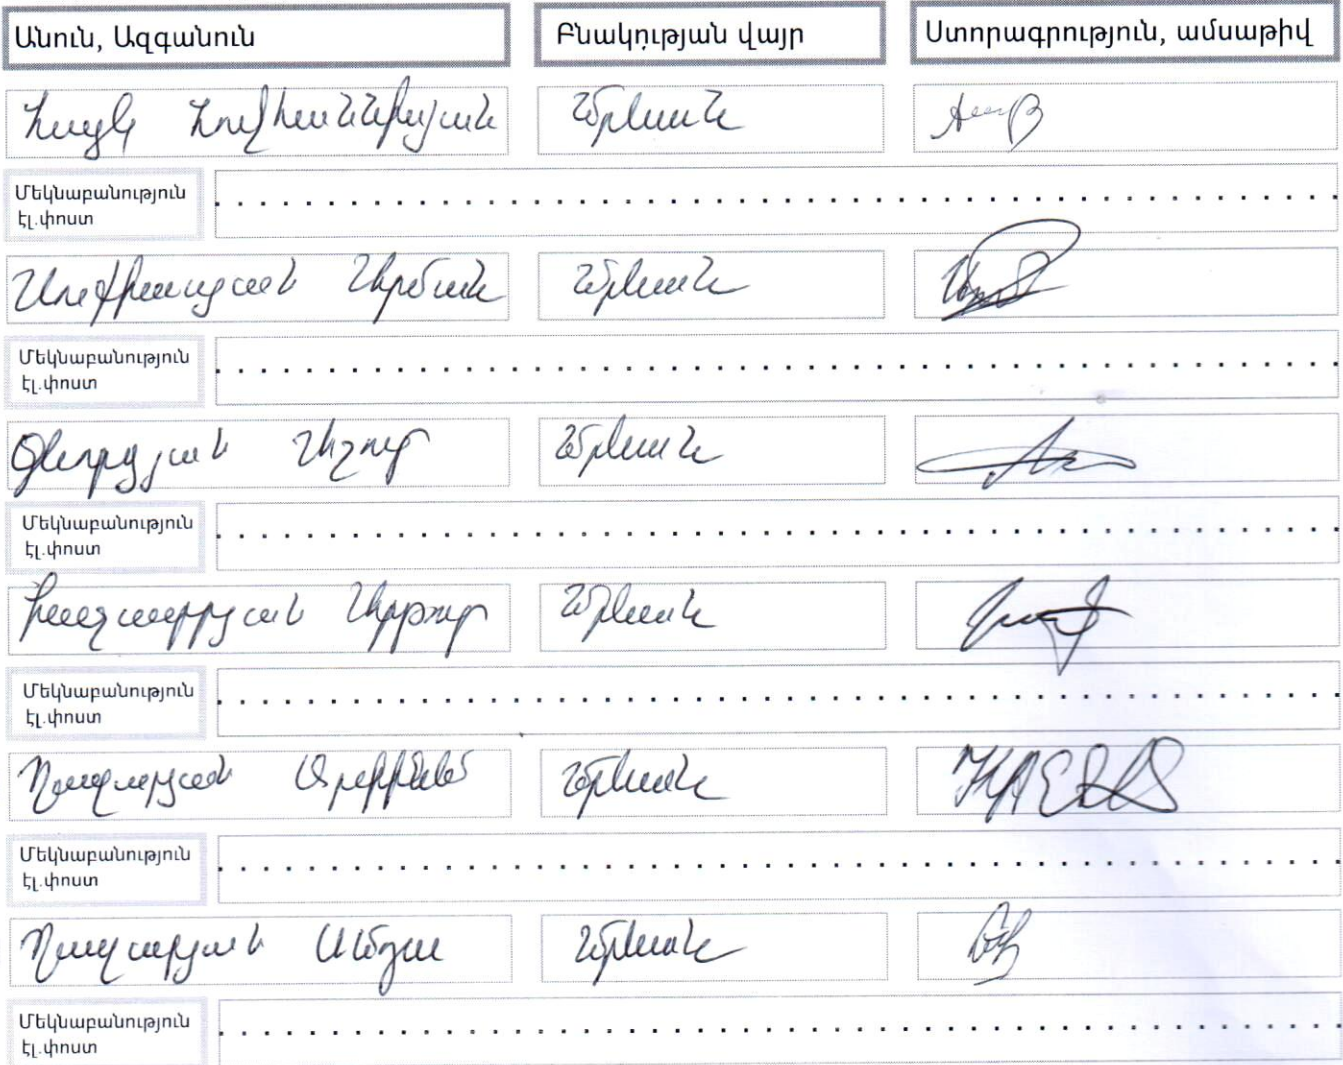 Անուն, Ազգանուն Բնակության վայր Ստորագրություն, ամսաթիվ
Հայկ Հովհաննիսյան Երևան
Մեկնաբանություն
էլ.փոստ
Երևան
Մեկնաբանություն
էլ.փոստ
Գևորգյան Աշոտ Երևան
Մեկնաբանություն
էլ.փոստ
Խաչատրյան Արթուր Երևան
Մեկնաբանություն
էլ.փոստ
Ղազարյան Երևան
Մեկնաբանություն
էլ.փոստ
Ղազարյան Աննա Երևան
Մեկնաբանություն
էլ.փոստ